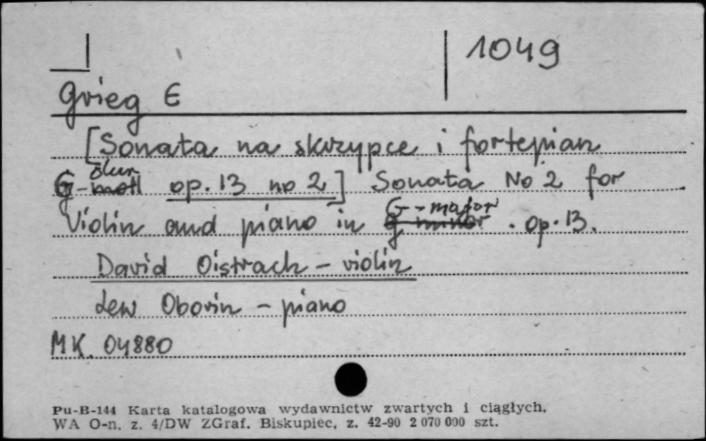 1049
Grieg E
[Sonata na skrzypce i fortepian
dur
G-moll op. 13 no 2] Sonata No 2 for
G-major
Violin and piano in g minor. op. 13.
David Oistrach - violin
Lew Oborin - piano
MK 04880
Pu-B-144 Karta katalogowa wydawnictw zwartych i ciągłych.
WA O-n. z. 4/DW ZGraf. Biskupiec, z. 42-90 2 070 000 szt.